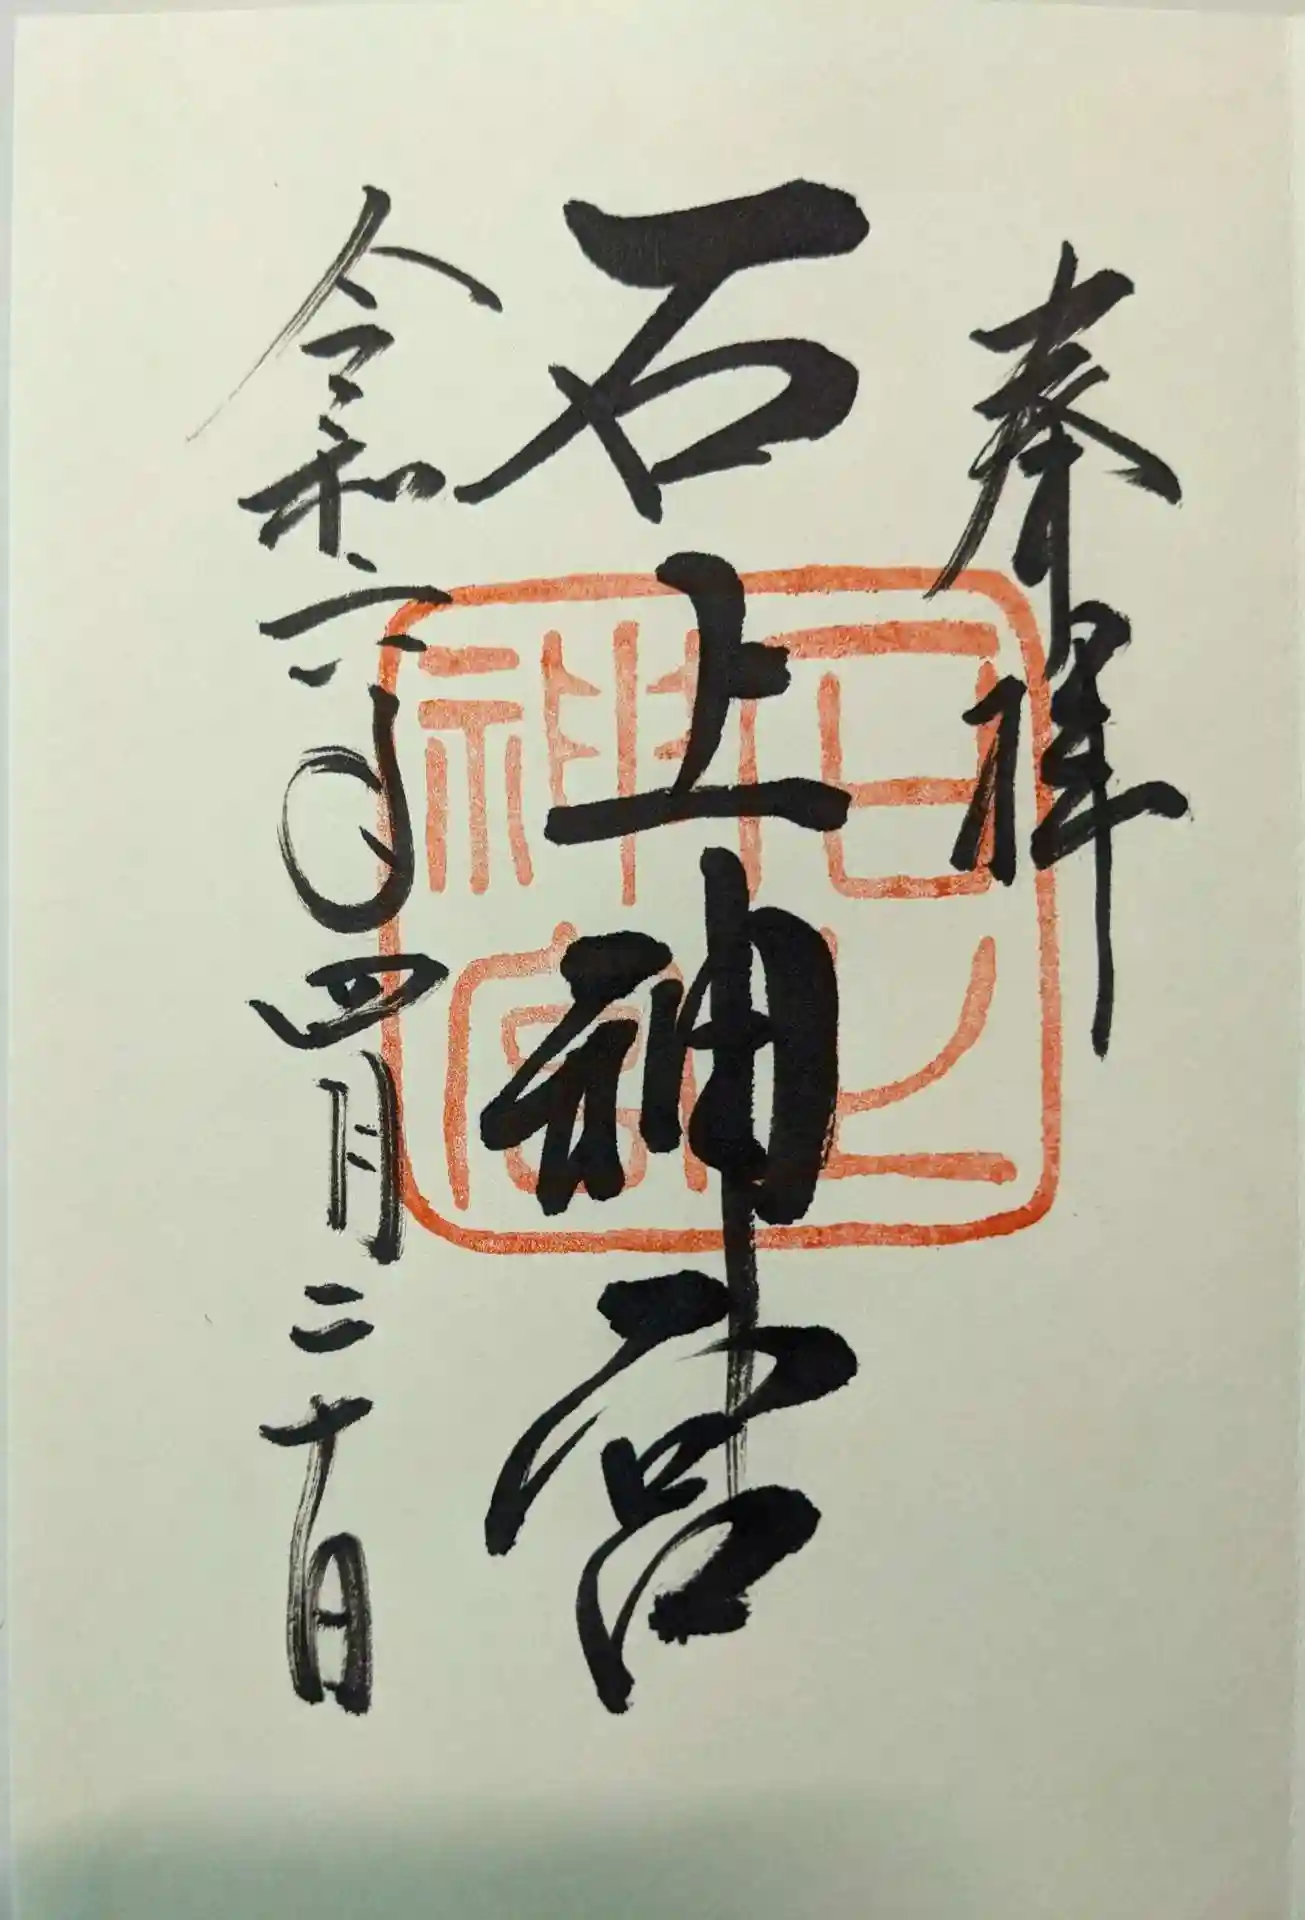 奉拝
石上神宮
石上神宮
令和六年四月二十日